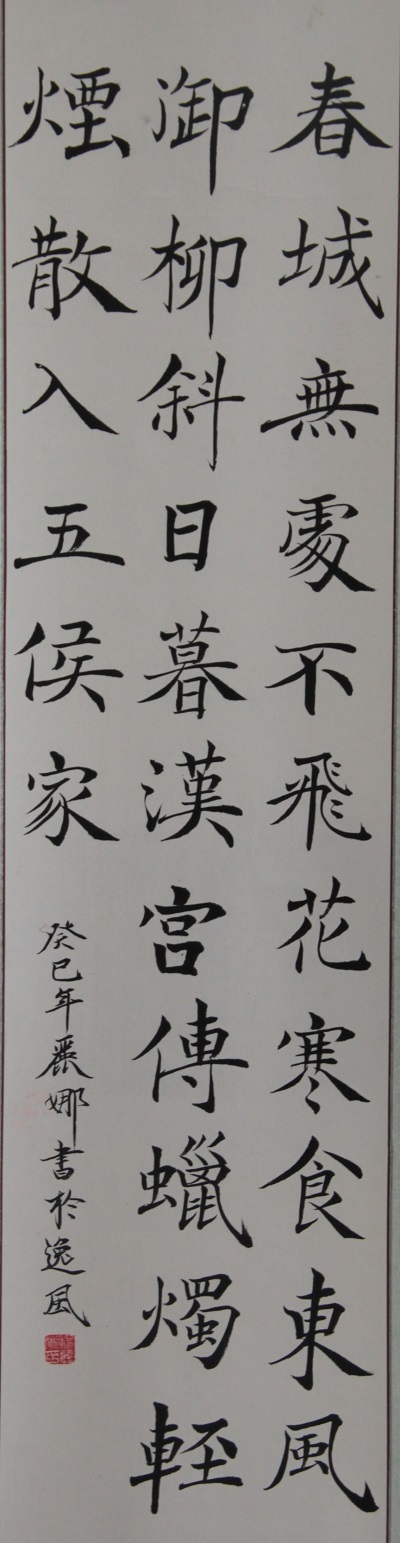 春城無處不飛花寒食東風
御柳斜日暮漢宮傳蠟燭輕
煙散入五侯家
癸巳年麗娜書於逸風